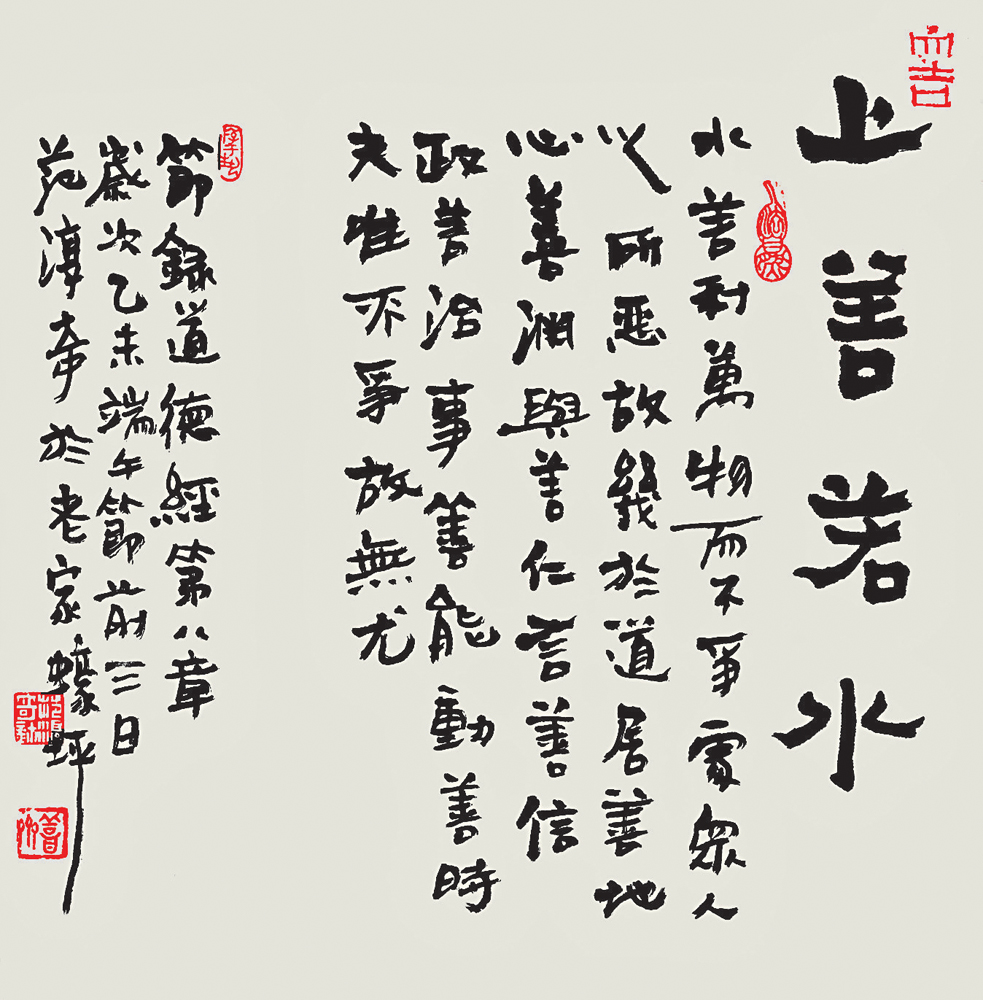 大吉
上善若水
水善利萬物而不爭處眾人
之所惡故幾於道居善地
心善淵與善仁言善信
政善治事善能動善時
夫唯不爭故無尤
節錄道德經第八章
歲次乙未端午節前三日
范淳奇於老家蠔坪